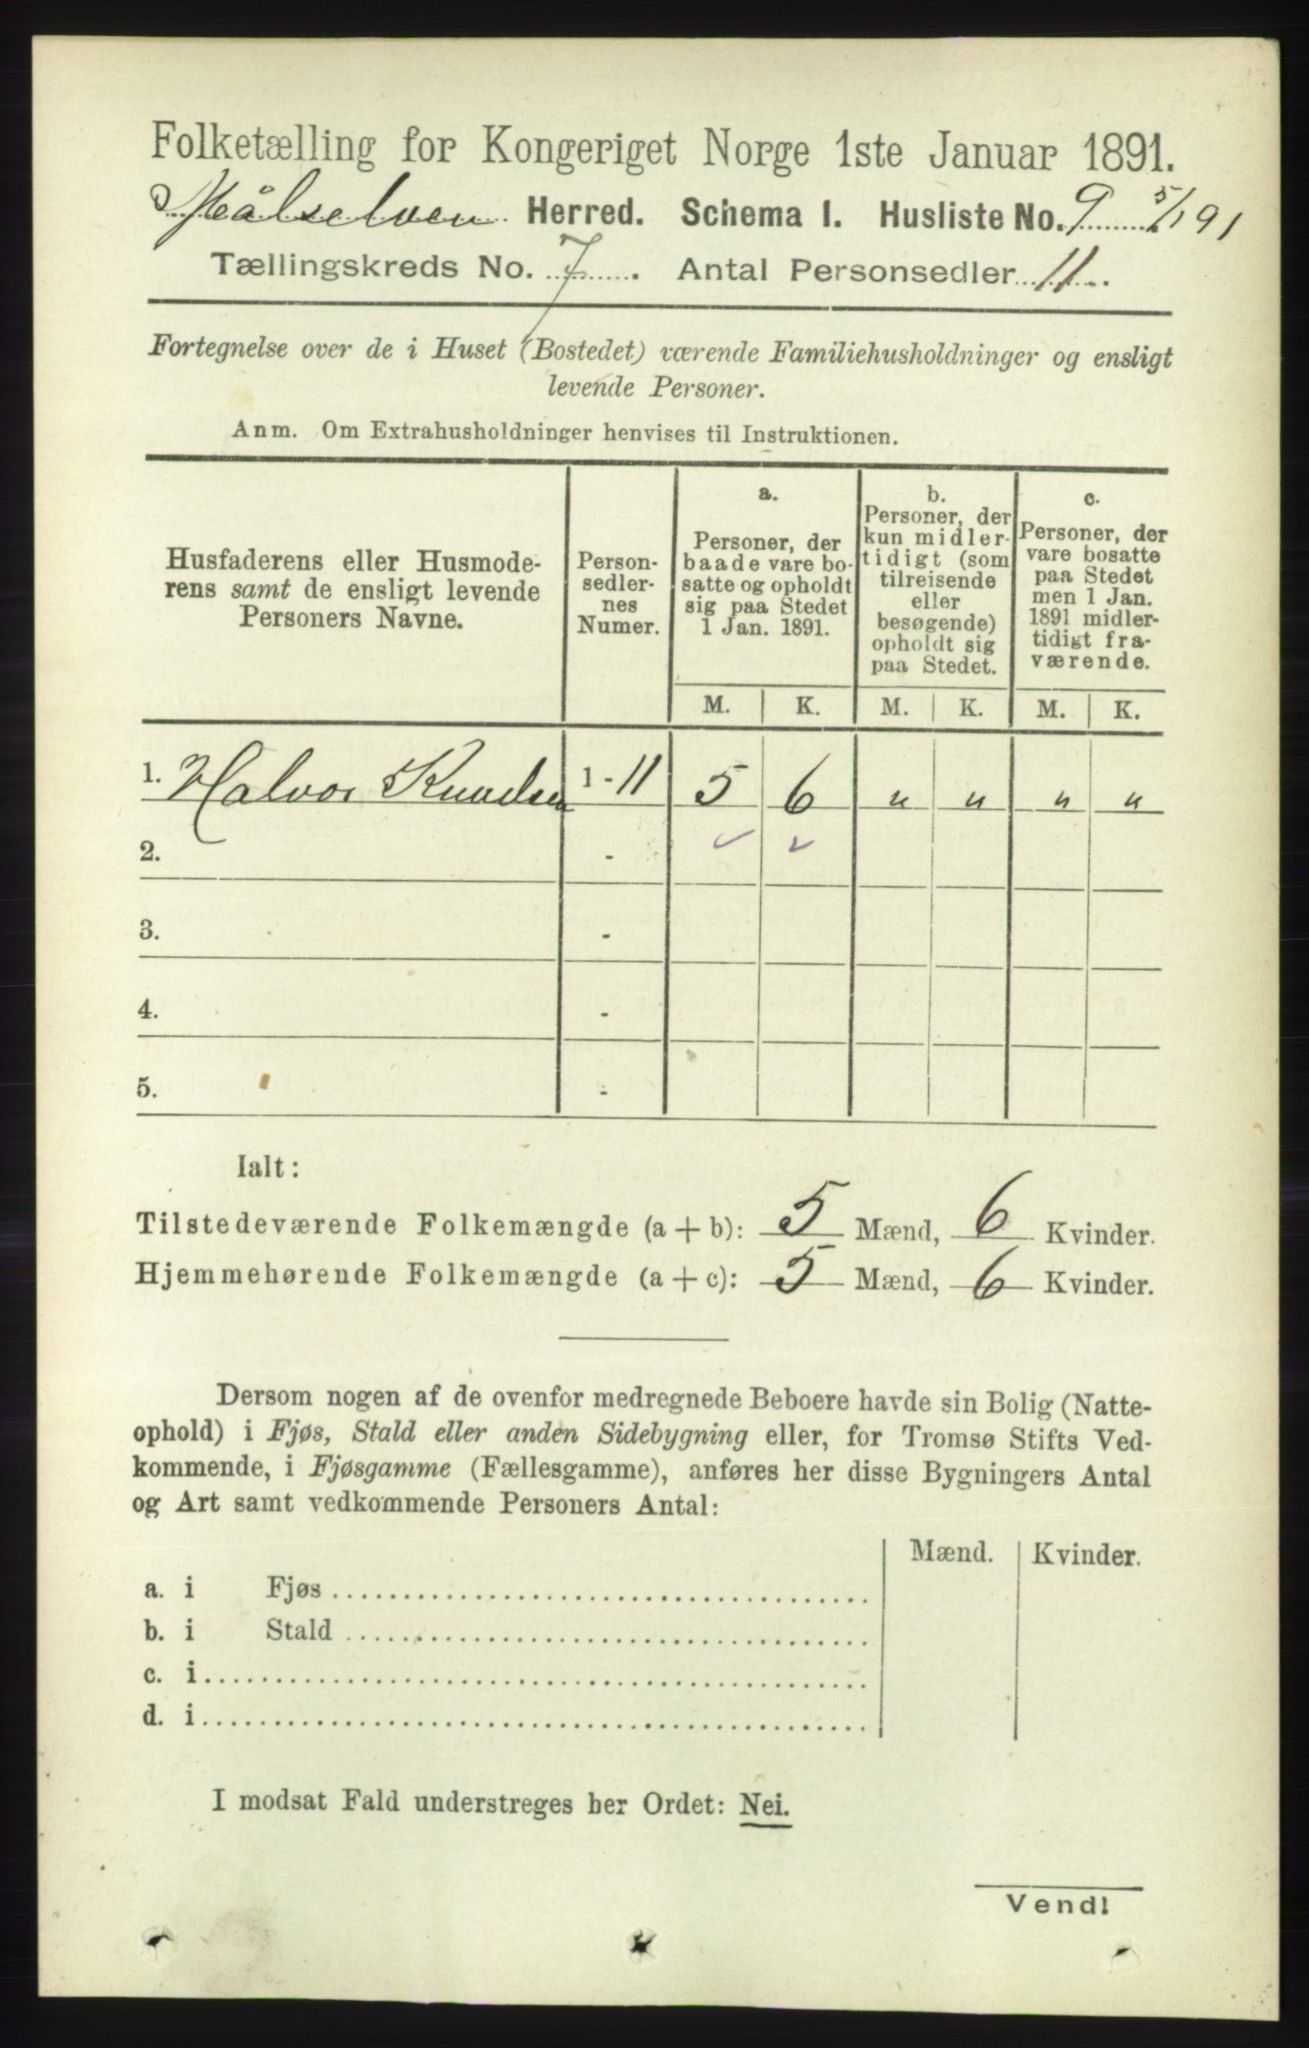 Folketælling for Kongeriget Norge 1ste Januar 1891.
Målselven Herred. Schema I. Husliste No. 9 5/1 91
Tællingskreds No. 7. Antal Personsedler 11.
Fortegnelse over de i Huset (Bostedet) værende Familiehusholdninger og ensligt
levende Personer.
Anm. Om Extrahusholdninger henvises til Instruktionen.
Husfaderens eller Husmode-
rens samt de ensligt levende
Personers Navne.
Person-
sedler-
nes
Numer.
a.
Personer, der
baade vare bo-
satte og opholdt
sig paa Stedet
1 Jan. 1891.
b.
Personer, der
kun midler-
tidigt (som
tilreisende
eller
besøgende)
opholdt sig
paa Stedet.
c.
Personer, der
vare bosatte
paa Stedet
men 1 Jan.
1891 midler-
tidigt fra-
værende.
M. K. M. K. M. K.
1. Halvor Knudsen 1 - 11 5 6 " " " "
2. -
3. -
4. -
5. -
Ialt:
Tilstedeværende Folkemængde (a + b): 5 Mænd, 6 Kvinder.
Hjemmehørende Folkemængde (a + c): 5 Mænd, 6 Kvinder.
Dersom nogen af de ovenfor medregnede Beboere havde sin Bolig (Natte-
ophold) i Fjøs, Stald eller anden Sidebygning eller, for Tromsø Stifts Ved-
kommende, i Fjøsgamme (Fællesgamme), anføres her disse Bygningers Antal
og Art samt vedkommende Personers Antal:
Mænd. Kvinder.
a. i Fjøs
b. i Stald
c. i
d. i
I modsat Fald understreges her Ordet: Nei.
Vend!